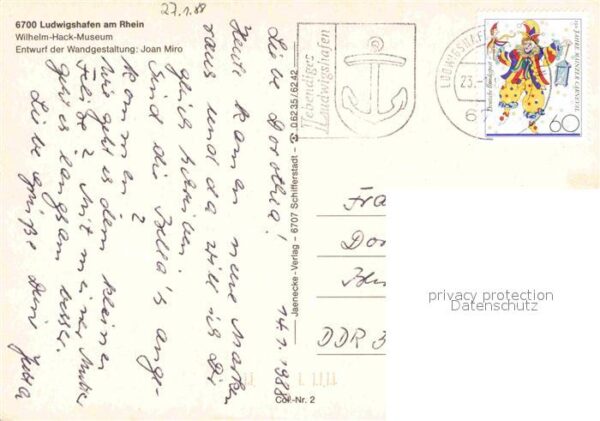 27.1.88
6700 Ludwigshafen am Rhein
Wilhelm-Hack-Museum
Entwurf der Wandgestaltung: Joan Miro
Liebe Dorothea!
14.1.1988
Heute kamen neue Marken
raus und da will ich Dir
gleich schreiben.
Sind die Bella's ange-
kommen?
Wie geht es dem kleinen
Felix? Mit meiner Mutter
geht es langsam besser.
Liebe Grüße Deine Jutta
Jaenecke-Verlag – 6707 Schifferstadt – 0 62 35/62 42
Col.-Nr. 2
Lebendiges
Ludwigshafen
LUDWIGSHAFEN
23.
6
150 JAHRE MAINZER CARNEVAL
Deutsche Bundespost
60
Fra
Do
DDR 3
privacy protection
Datenschutz